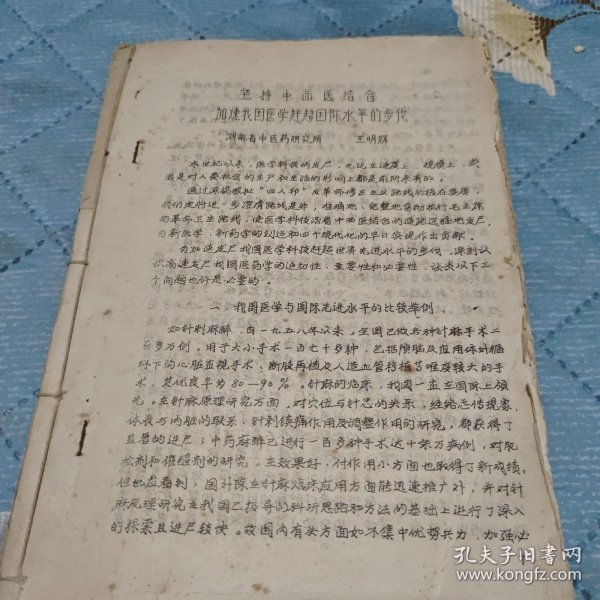 坚持中西医结合
加速我国医学赶超国际水平的步伐
湖南省中医药研究所 王明辉
本世纪以来，医学科技的发尸，无论在速度上、规模上、或
者是对人类社会的生产和生活的影响上都是前所未有的。
通过深揭狠批“四人邦”反革命修正主义路线的极右实质，
我们定将进一步澄清路线是非，准确地、完整地贯彻执行毛主席
的革命卫生路线，使医学科技沿着中西医结合的道路迅猛地发尸，
为新医学、新药学的创造和四个现代化的早日实现作出贡献。
为加速发尸我国医学科技赶超世界先进水平的步伐，深刻认
识高速发尸我国医药学的迫切性、重要性和必要性，谈谈以下三
个问题也许是必要的。
一、我国医学与国际先进水平的比较举例
如针刺麻醉，自一九五八年以来，全国已做各种针麻手术二
百多万例，用于大小手术一百七十多种，包括颅脑及应用体外循
环下的心脏直视手术、断肢再植及人造血管移植等难度较大的手
术，其优良率为80—90%。针麻的临床，我国一直在国际上领
先。在针麻原理研究方面，对穴位与针感的关系、经络感传现象、
体表与内脏的联系、针刺镇痛作用及调整作用的研究，都获得了
显著的进尸；中药麻醉已进行一百多种手术达十余万病例，对肌
松剂和催醒剂的研究，在效果好、付作用小方面也取得了新成绩。
但也应看到，国外除在针麻临床应用方面能迅速推广外，并对针
麻原理研究在我国已指导的科研思路和方法的基础上进行了深入
的探索且进尸较快。故国内有关方面如不集中优势兵力，加强必
孔夫子旧书网
www.kongfz.com